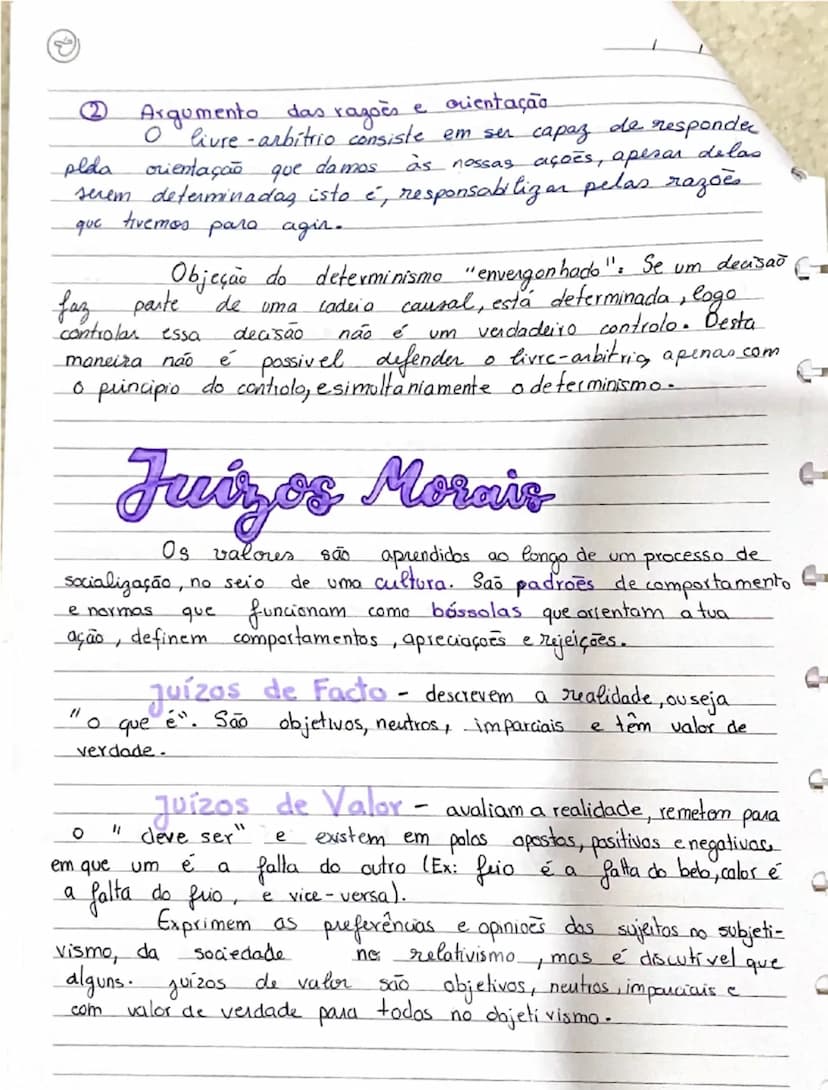 ② Argumento das razões e orientação
O livre-arbítrio consiste em ser capaz de responder
pelda orientação que damos às nossas ações, apesar delas
serem determinadas isto é, responsabilizar pelas razões
que tivemos para agir.
Objeção do determinismo "envergonhado": Se um decisão
faz parte de uma cadeia causal, está determinada, logo
controlar essa decisão não é um verdadeiro controlo. Desta
maneira não é possivel defender o livre-arbitrio, apenas com
o principio do controlo, e simultaniamente o determinismo.
Juízos Morais
Os valores são aprendidos ao longo de um processo de
socialização, no seio de uma cultura. São padrões de comportamento
e normas que funcionam como bóssolas que orientam a tua
ação, definem comportamentos, apreciações e rejeições.
Juízos de Facto - descrevem a realidade, ou seja
"o que é". São objetivos, neutros, imparciais e têm valor de
verdade.
Juízos de Valor - avaliam a realidade, remetem para
o "deve ser" e existem em polos opostos, positivos e negativos,
em que um é a falta do outro (Ex: feio é a falta do belo, calor é
a falta do frio, e vice-versa).
Exprimem as preferências e opiniões dos sujeitos no subjeti-
vismo, da sociedade no relativismo, mas é discutível que
alguns. juízos de valor são objetivos, neutros, imparciais e
com valor de verdade para todos no objetivismo.